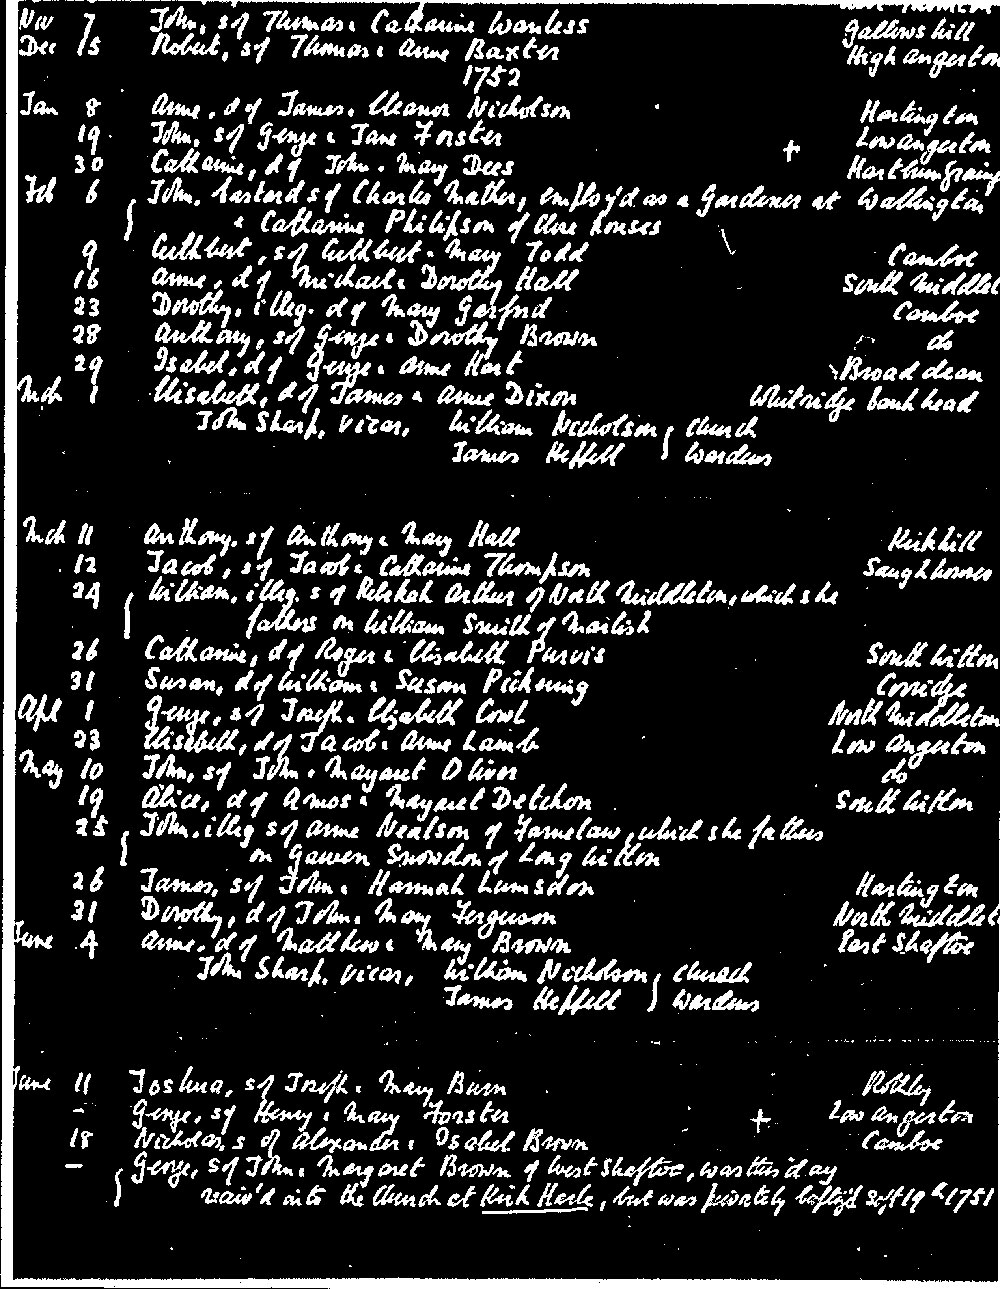 Nov 7 John, s of Thomas & Catharine Wanless Gallows hill
Dec 15 Robert, s of Thomas & Anne Baxter High angerton
1752
Jan 8 Anne, d of James & Eleanor Nicholson Hartington
19 John, s of George & Jane Forster + Low angerton
30 Catharine, d of John & Mary Dees Hartburn
Feb 6 John, bastard s of Charles Mather, employ'd as a Gardener at Wallington
& Catharine Philipson of Close houses
9 Cuthbert, s of Cuthbert & Mary Todd Camboe
16 Anne, d of Michael & Dorothy Hall South Middlet
23 Dorothy, illeg. d of Mary Camboe
28 Anthony, s of George & Dorothy Brown do
29 Isabel, d of George & Anne Hart Broad dean
Mch 1 Elisabeth, d of James & Anne Dixon Whitridge bank head
John Sharp, Vicar, William Nicholson } Church
James Heppell } Wardens
Mch 11 Anthony, s of Anthony & Mary Hall Kirkhill
12 Jacob, s of Jacob & Catharine Thompson Saughhouses
24 William, illeg. s of Rebekah Arthur of North Middleton, which she
fathers on William Smith of
26 Catharine, d of Roger & Elisabeth Purvis South Witton
31 Susan, d of William & Susan Pickering Corridge
Apl 1 George, s of Joseph & Elizabeth North Middleton
23 Elisabeth, d of Jacob & Anne Lamb Low Angerton
May 10 John, s of John & Margaret Oliver do
19 Alice, d of Amos & Margaret Detchon South Witton
25 John, illeg s of Anne Nealson of Farnelaw, which she fathers
on Gawen Snowdon of Long Witton
26 James, s of John & Hannah Lumsdon Hartington
31 Dorothy, d of John & Mary Ferguson North Middlet
June 4 Anne, d of Matthew & Mary Brown East Shaftoe
John Sharp, Vicar, William Nicholson } Church
James Heppell } Wardens
June 11 Joshua, s of Joseph & Mary Burn Rothley
– George, s of Henry & Mary Forster + Low angerton
18 Nicholas, s of Alexander & Isabel Brown Camboe
– George, s of John & Margaret Brown of West Shaftoe, was this day
receiv'd into the Church at Kirk Harle, but was privately baptiz'd Sept 19th 1751